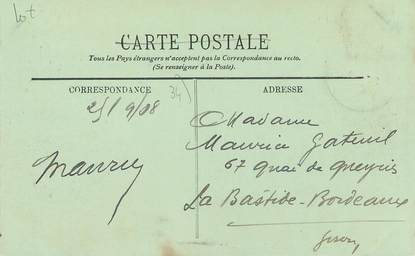 Lot
CARTE POSTALE
Tous les Pays étrangers n'acceptent pas la Correspondance au recto.
(Se renseigner à la Poste).
CORRESPONDANCE
ADRESSE
34
Madame
Maurice Gateuil
67 quai de Queyries
La Bastide - Bordeaux